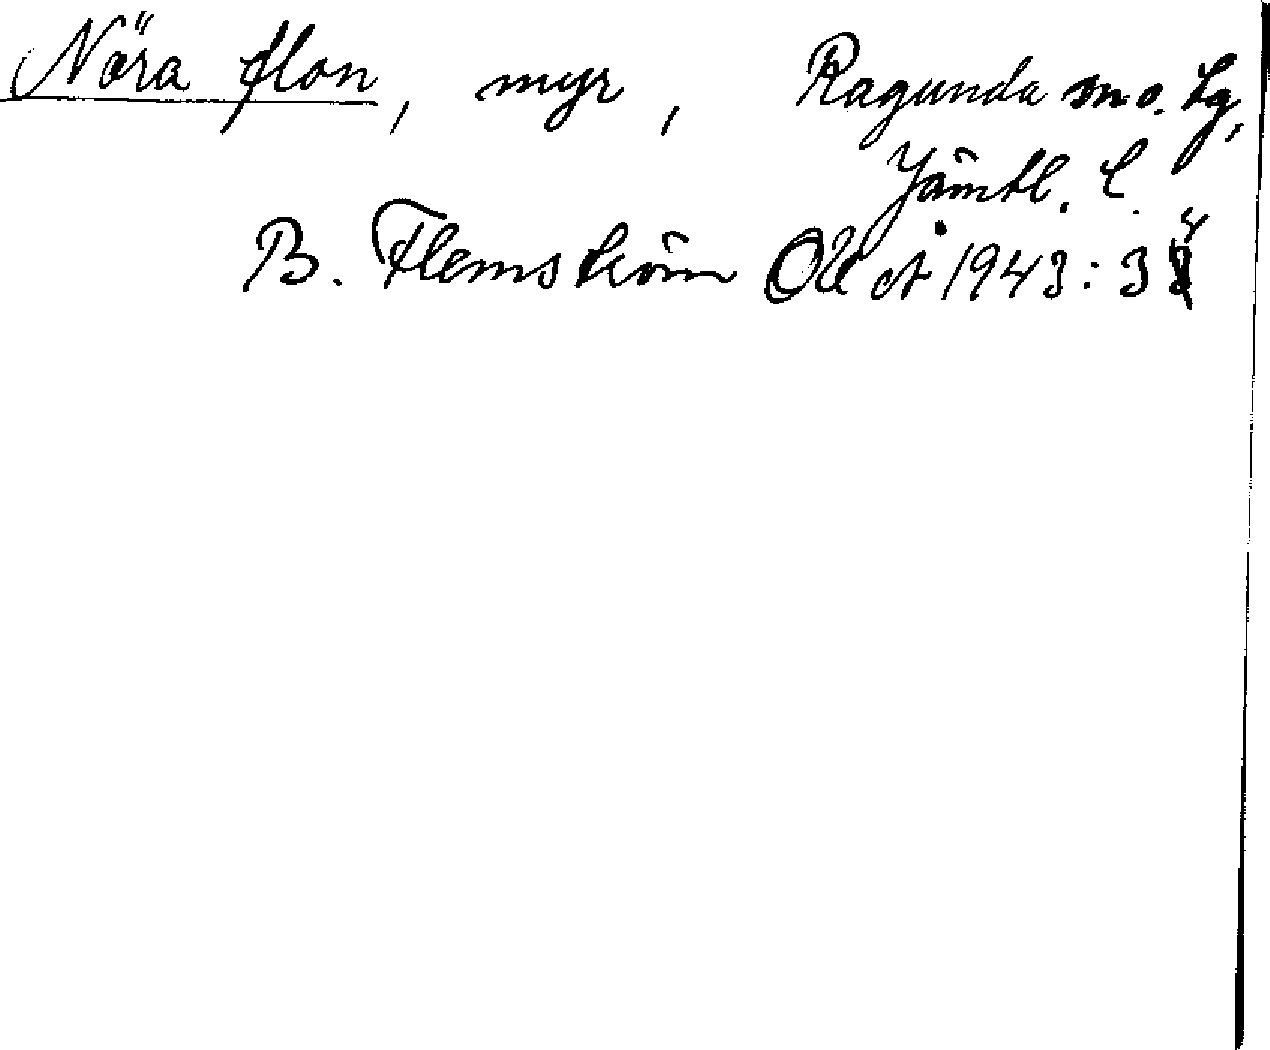 Nöra flon, myr, Ragunda sn o. tg,
Jämtl. l.
B. Flemström OUÅ 1943: 3